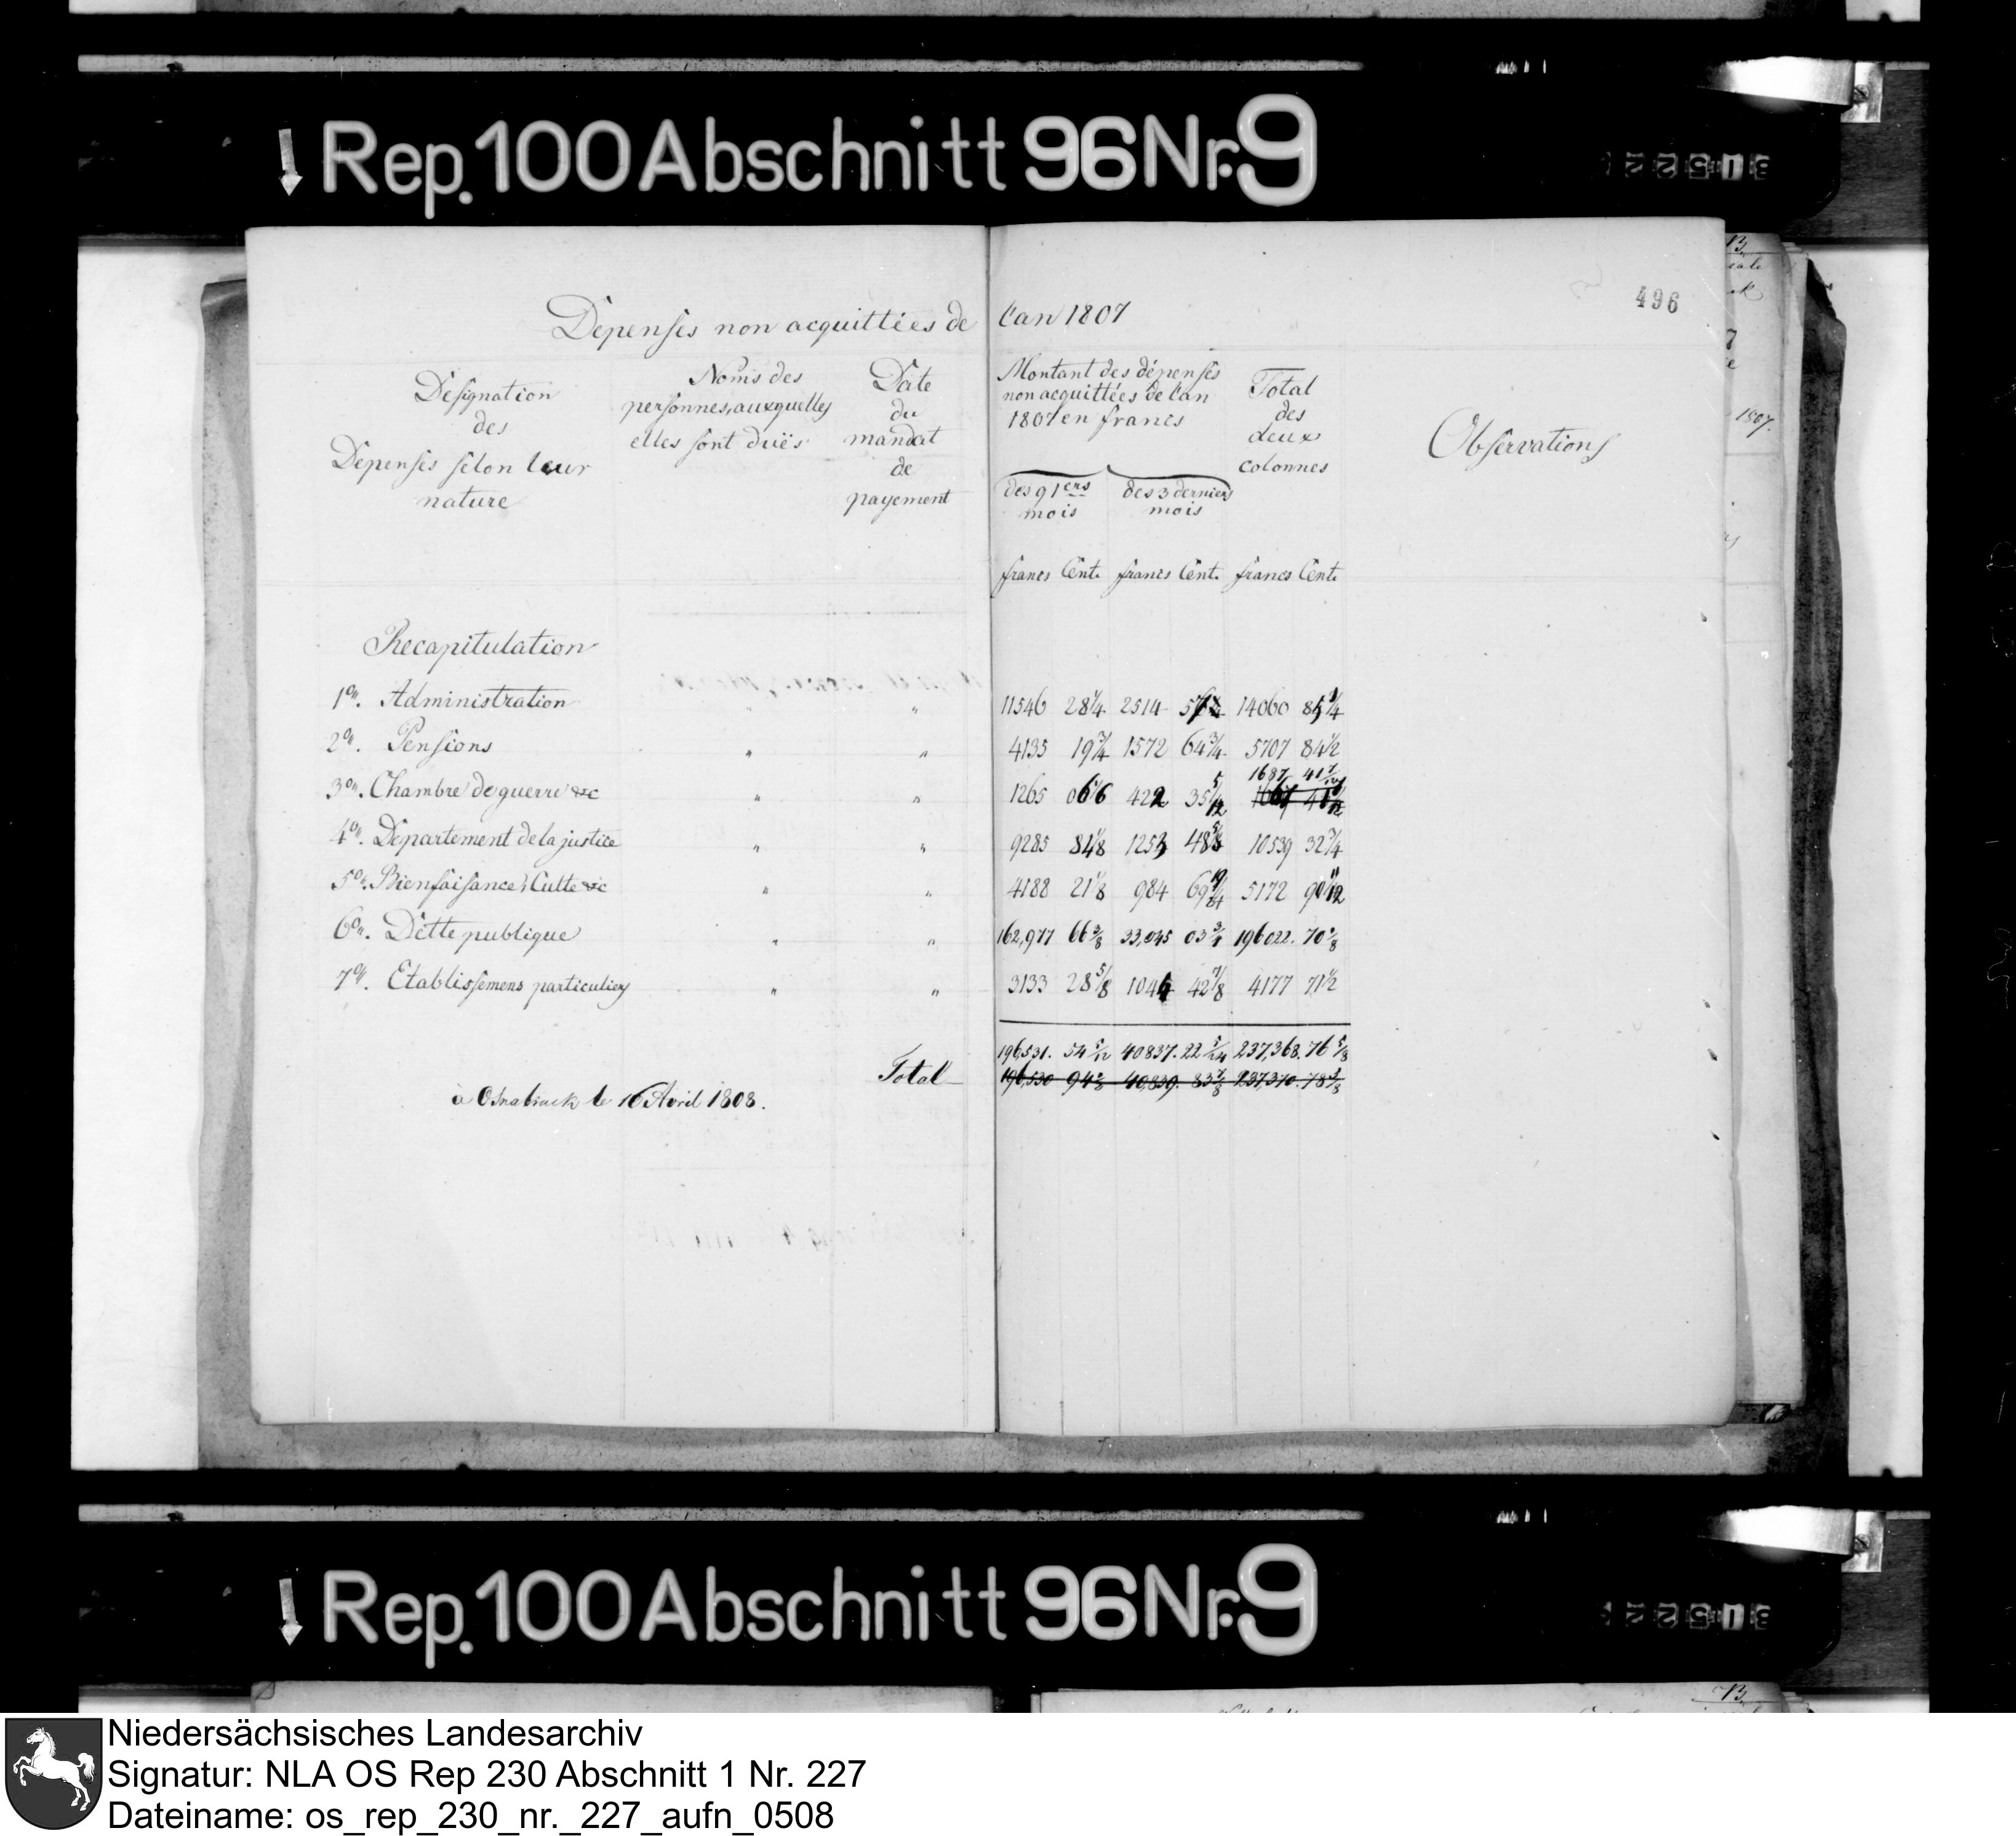 Rep. 100 Abschnitt 96 Nr. 9
496
Dépenses non acquittées de l'an 1807
Designation des Dépenses selon leur nature
Noms des personnes, auxquelles elles sont duës
Date du mandat de payement
Montant des dépenses non acquittées de l'an 1807 en francs
Total des deux colonnes
Observations
des 9 1ers mois
des 3 derniers mois
francs Cent. francs Cent. francs Cent.
Recapitulation
1°. Administration " 11546 28 1/4 2514 14060
2°. Pensions " " 4135 19 3/4 1572 64 3/4 5707 84 1/2
1687 41 7/12
3°. Chambre de guerre &c " " 1265 06 1/6 422 35 5/12
4°. Département de la justice " " 9285 84 1/8 1253 48 5/8 10539 32 3/4
5°. Bienfaisance, Culte &c " " 4188 21 1/8 984 69 19/24 5172 90 11/12
6°. Dette publique " " 162,977 66 3/8 33,045 03 196022. 70
7°. Etablissemens particuliers " " 3133 28 5/8 1044 42 7/8 4177 71 1/2
196,531. 54 5/12 40837. 22 237,368. 76 5/8
Total 196,530 94 40,839. 83 7/8 237,370. 78 3/8
à Osnabruck le 16 Avril 1808.
B
1807.
Rep. 100 Abschnitt 96 Nr. 9
B
Niedersächsisches Landesarchiv
Signatur: NLA OS Rep 230 Abschnitt 1 Nr. 227
Dateiname: os_rep_230_nr._227_aufn_0508